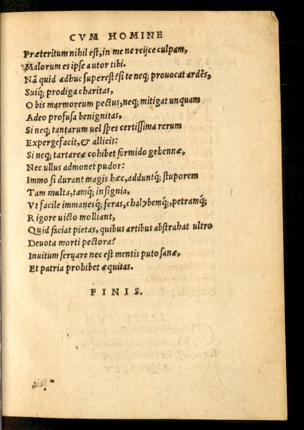 CVM HOMINE
Præteritum nihil est, in me ne reijce culpam,
Malorum es ipse autor tibi.
Nã quid adhuc superest? si te neq; prouocat ardẽs,
Suiq; prodiga charitas,
O bis marmoreum pectus, neq; mitigat unquam
Adeo profusa benignitas,
Si neq; tantarum uel spes certissima rerum
Expergefacit, & allicit:
Si neq; tartareæ cohibet formido gehennæ,
Nec ullus admonet pudor:
Immo si durant magis hæc, adduntq; stuporem
Tam multa, tamq; insignia,
Vt facile immanesq; feras, chalybemq;, petramq;
Rigore uicto molliant,
Quid faciat pietas, quibus artibus abstrahat ultro
Deuota morti pectora?
Inuitum seruare nec est mentis puto sanæ,
Et patria prohibet æquitas.
FINIS.